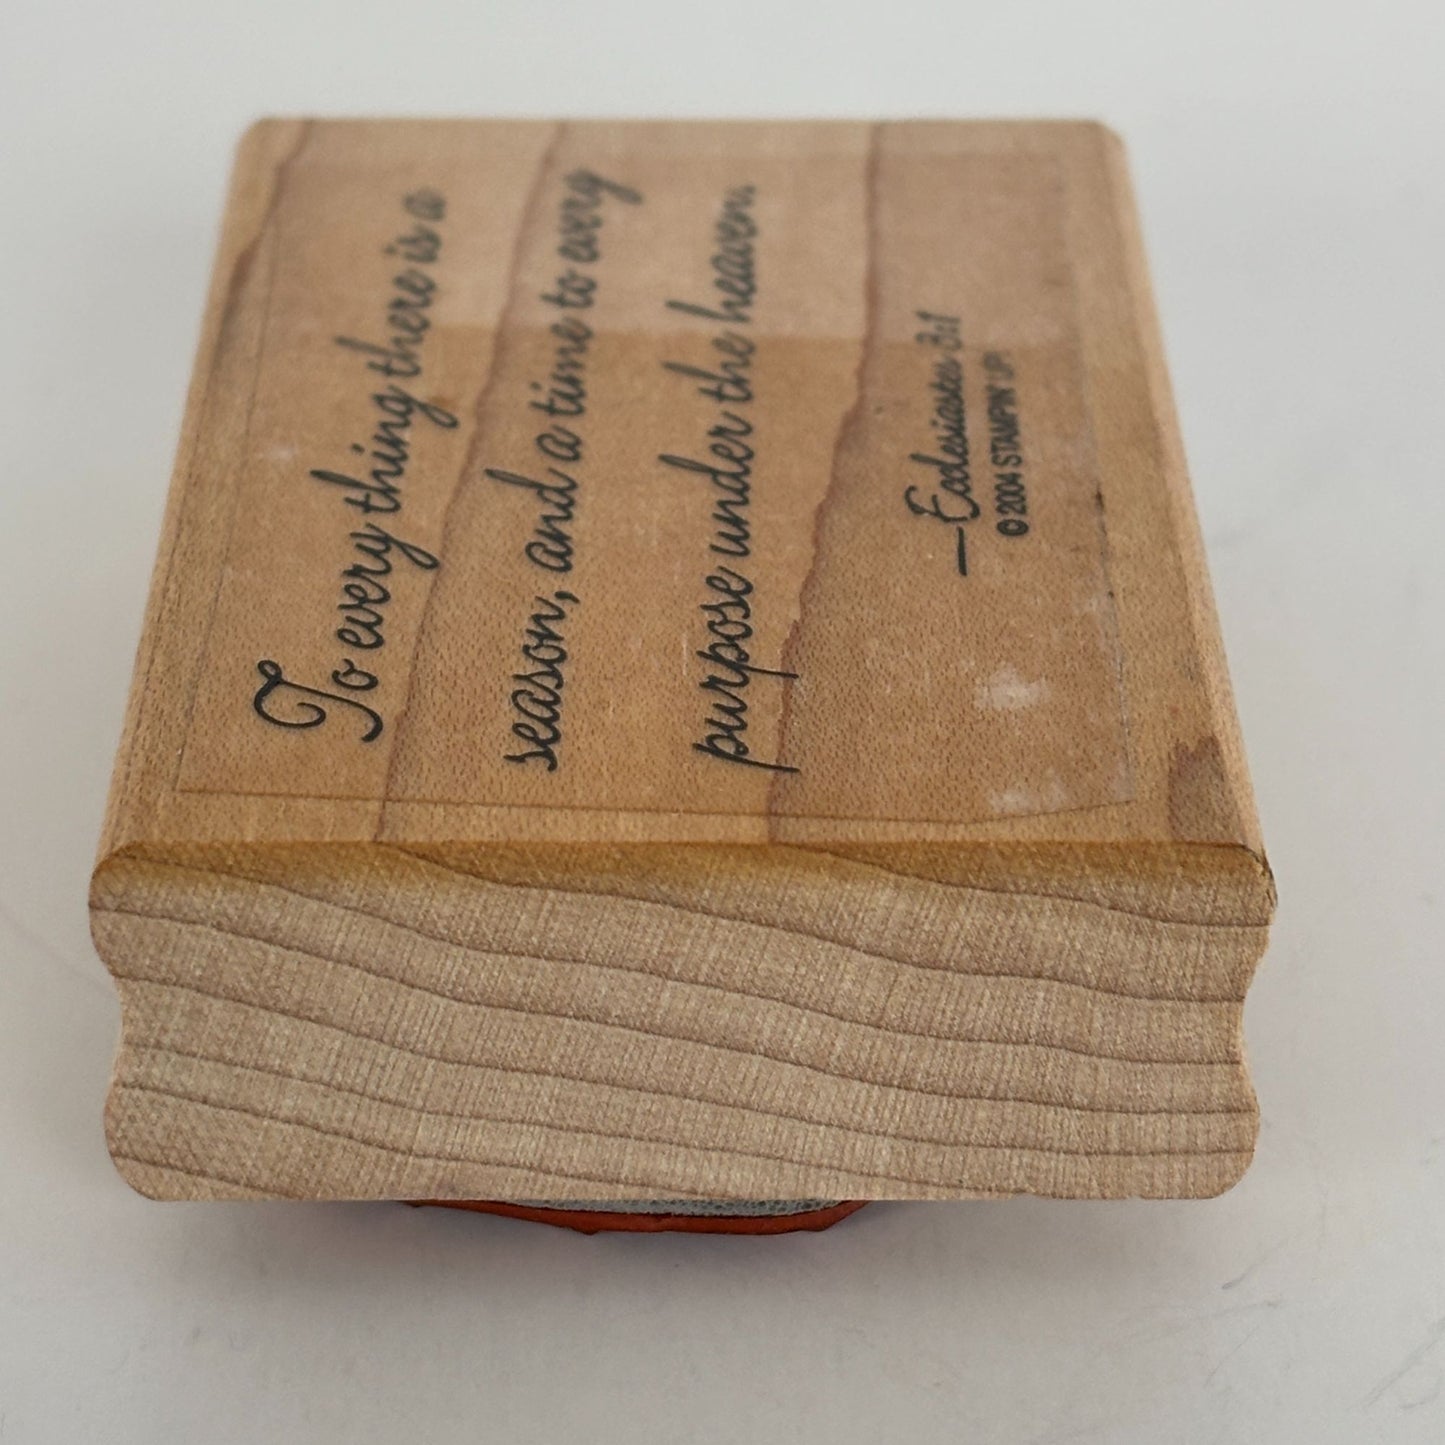 To every thing there is a
season, and a time to every
purpose under the heaven.
—Ecclesiastes 3:1
© 2004 STAMPIN' UP!